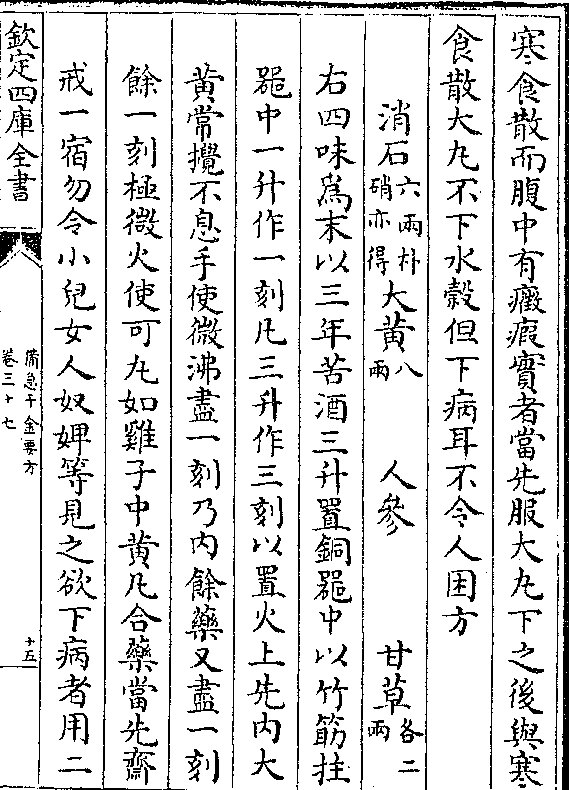 寒食散而腹中有癥瘕實者當先服大丸下之後與寒
食散大丸不下水穀但下病耳不令人困方
消石六兩朴硝亦得 大黃八兩 人參 甘草各二兩
右四味為末以三年苦酒三升置銅器中以竹筋拄
器中一升作一刻凡三升作三刻以置火上先內大
黃常攪不息手使微沸盡一刻乃內餘藥又盡一刻
餘一刻極微火使可丸如雞子中黃凡合藥當先齋
戒一宿勿令小兒女人奴婢等見之欲下病者用二
欽定四庫全書
備急千金要方
卷三十七
十五